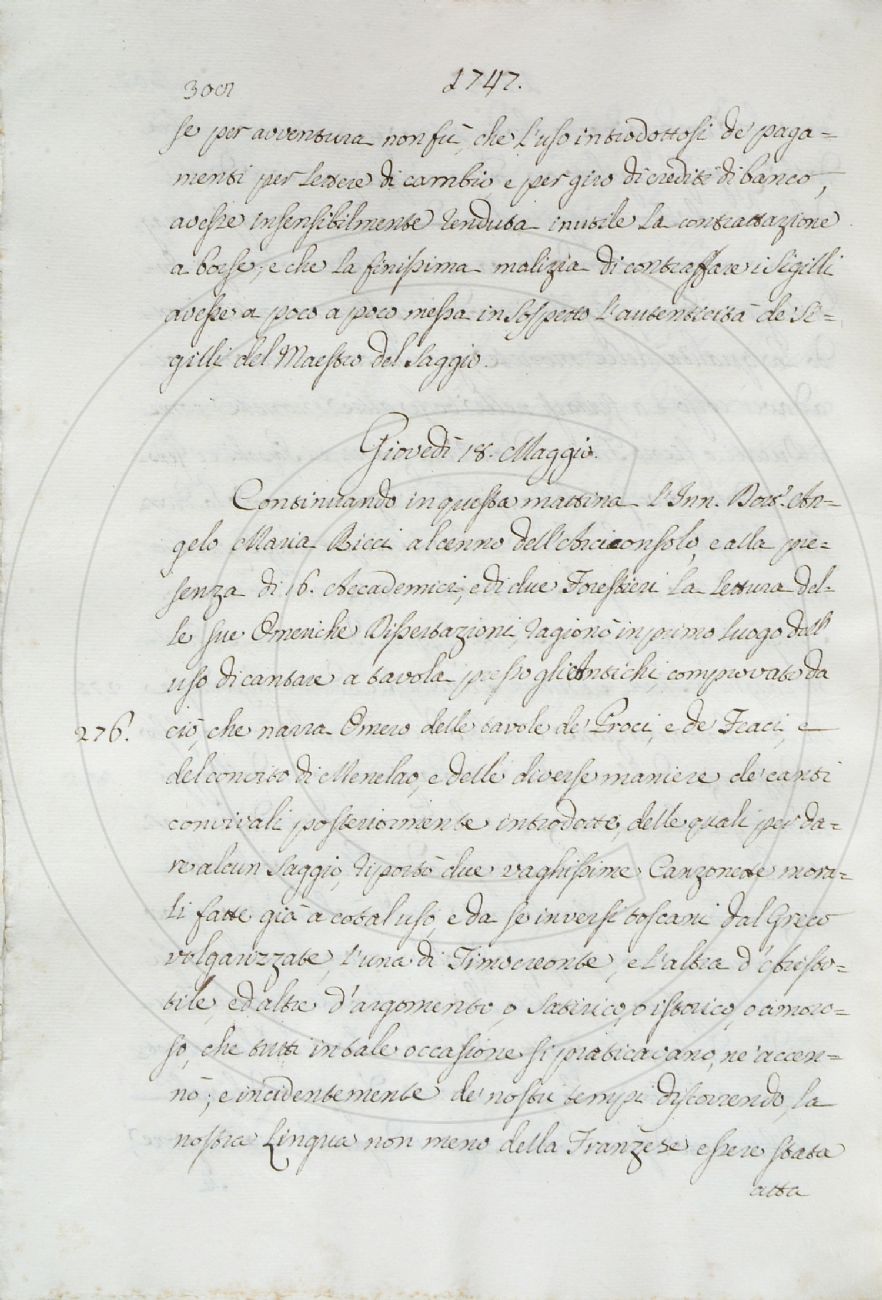 1747.
se per avventura non fù, che l'uso introdottosi de' paga=
menti per lettere di cambio e per giro di crediti di banco,
avesse insensibilmente renduta inutile la contrattazione
a borse; e che la finissima malizia di contraffare i Sigilli
avesse a poco a poco messa in sospetto l'autenticità de' Si=
gilli del Maestro del Saggio.
Giovedì 18. Maggio.
Continuando in questa mattina l'Inn. Dott. An=
gelo Maria Ricci al cenno dell'Arciconsolo, e alla pre=
senza di 16. Accademici, e di due Forestieri la lettura del=
le sue Omeriche Dissertazioni, ragionò in primo luogo dell'
uso di cantare a tavola presso gli Antichi, comprovato da
276. ciò, che narra Omero delle tavole de' Proci, e de' Feaci, e
del convito di Menelao, e delle diverse maniere de' canti
convivali posteriormente introdotte, delle quali per da=
re alcun saggio, riportò due vaghissime Canzonette mora=
li fatte già a cotal uso, e da se in versi toscani dal Greco
volgarizzate, l'una di Timocreonte, e l'altra d'Aristo=
tile, ed altre d'argomento, o satirico, o istorico, o amoro=
so, che tutti in tale occasione si praticavano, ne accen=
nò; e incidentemente de' nostri tempi discorrendo, la
nostra Lingua non meno della Franzese essere stata
atta